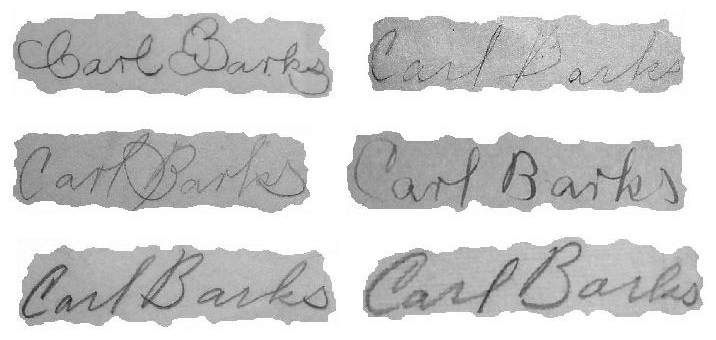 Carl Barks Carl Barks
Carl Barks Carl Barks
Carl Barks Carl Barks